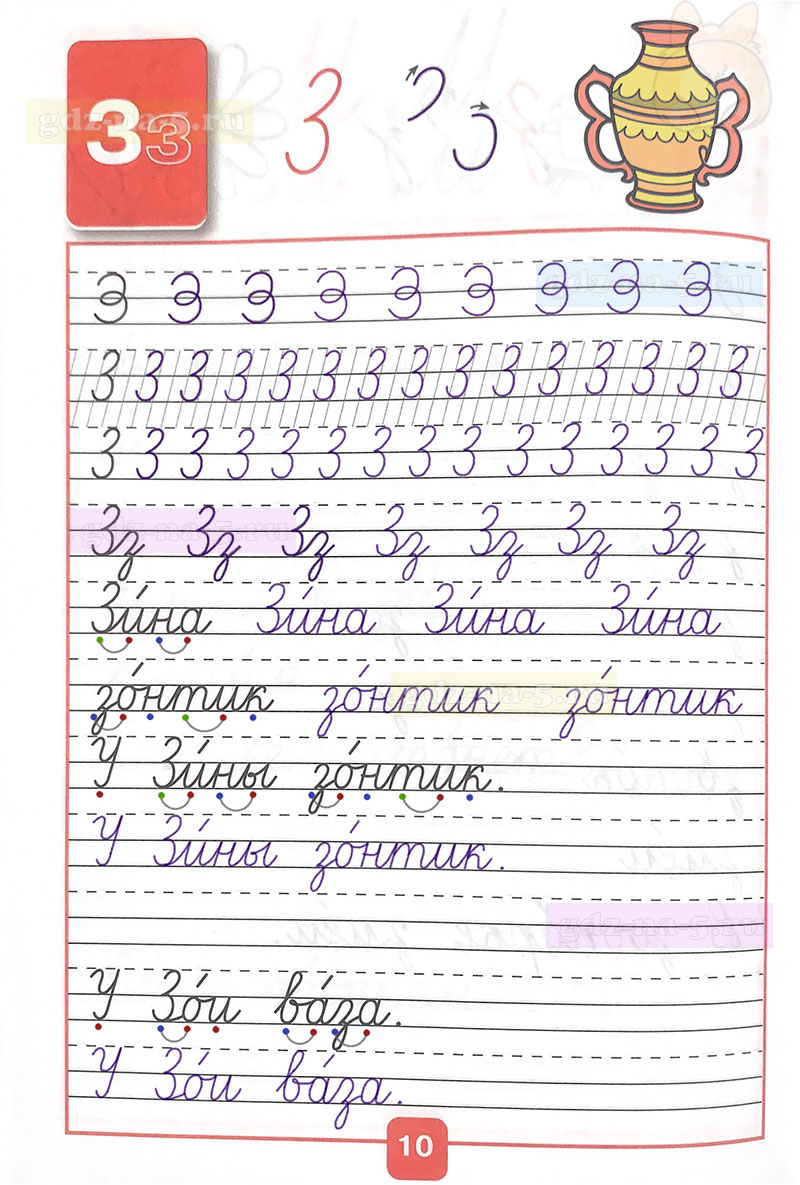 Зз З
gdz-na-5.ru
З З З З З З З З З
gdz-na-5.ru
З З З З З З З З З З З З З З З
З З З З З З З З З З З З З З З
Зз Зз Зз Зз Зз Зз Зз
gdz-na-5.ru
Зи́на Зи́на Зи́на Зи́на
зо́нтик зо́нтик зо́нтик
gdz-na-5.ru
У Зи́ны зо́нтик.
У Зи́ны зо́нтик.
gdz-na-5.ru
У Зо́и ва́за.
У Зо́и ва́за.
10